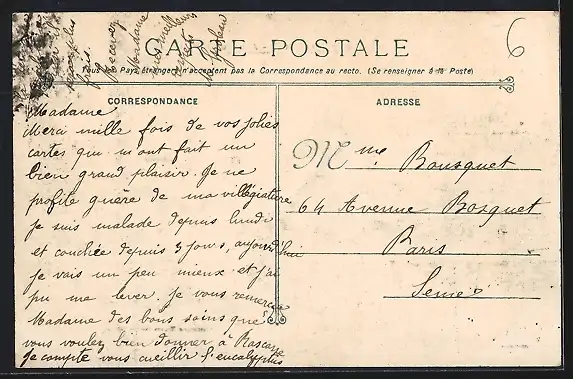 6
CARTE POSTALE
Tous les Pays étrangers n'acceptent pas la Correspondance au recto. (Se renseigner à la Poste)
CORRESPONDANCE
Madame
Merci mille fois de vos jolies
cartes qui m'ont fait un
bien grand plaisir. Je ne
profite guère de ma villégiature
je suis malade depuis lundi
et couchée depuis 3 jours, aujourd'hui
je vais un peu mieux et j'ai
pu me lever. je vous remercie
Madame des bons soins que
vous voulez bien donner à Rascasse
je compte vous cueillir l'eucalyptus
plus
Recevez
Madame
mes meilleurs
respects
ADRESSE
Mme Bousquet
64 Avenue Bosquet
Paris
Seine